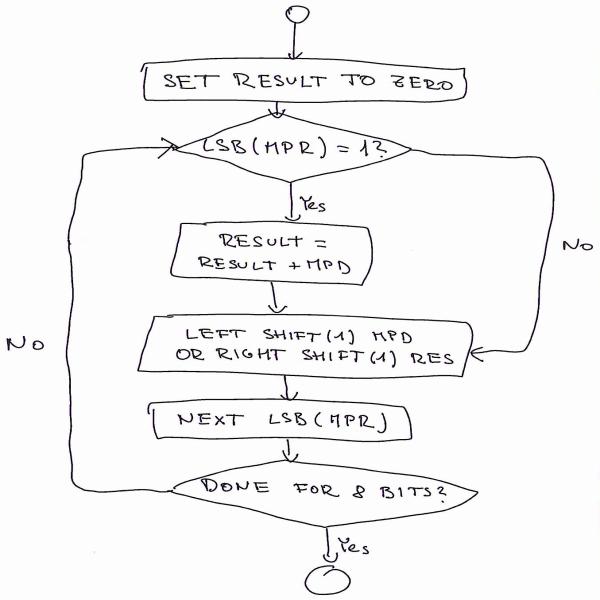 SET RESULT TO ZERO
LSB(MPR) = 1?
Yes
RESULT =
RESULT + MPD
NO
LEFT SHIFT(1) MPD
OR RIGHT SHIFT(1) RES
NO
NEXT LSB(MPR)
DONE FOR 8 BITS?
Yes